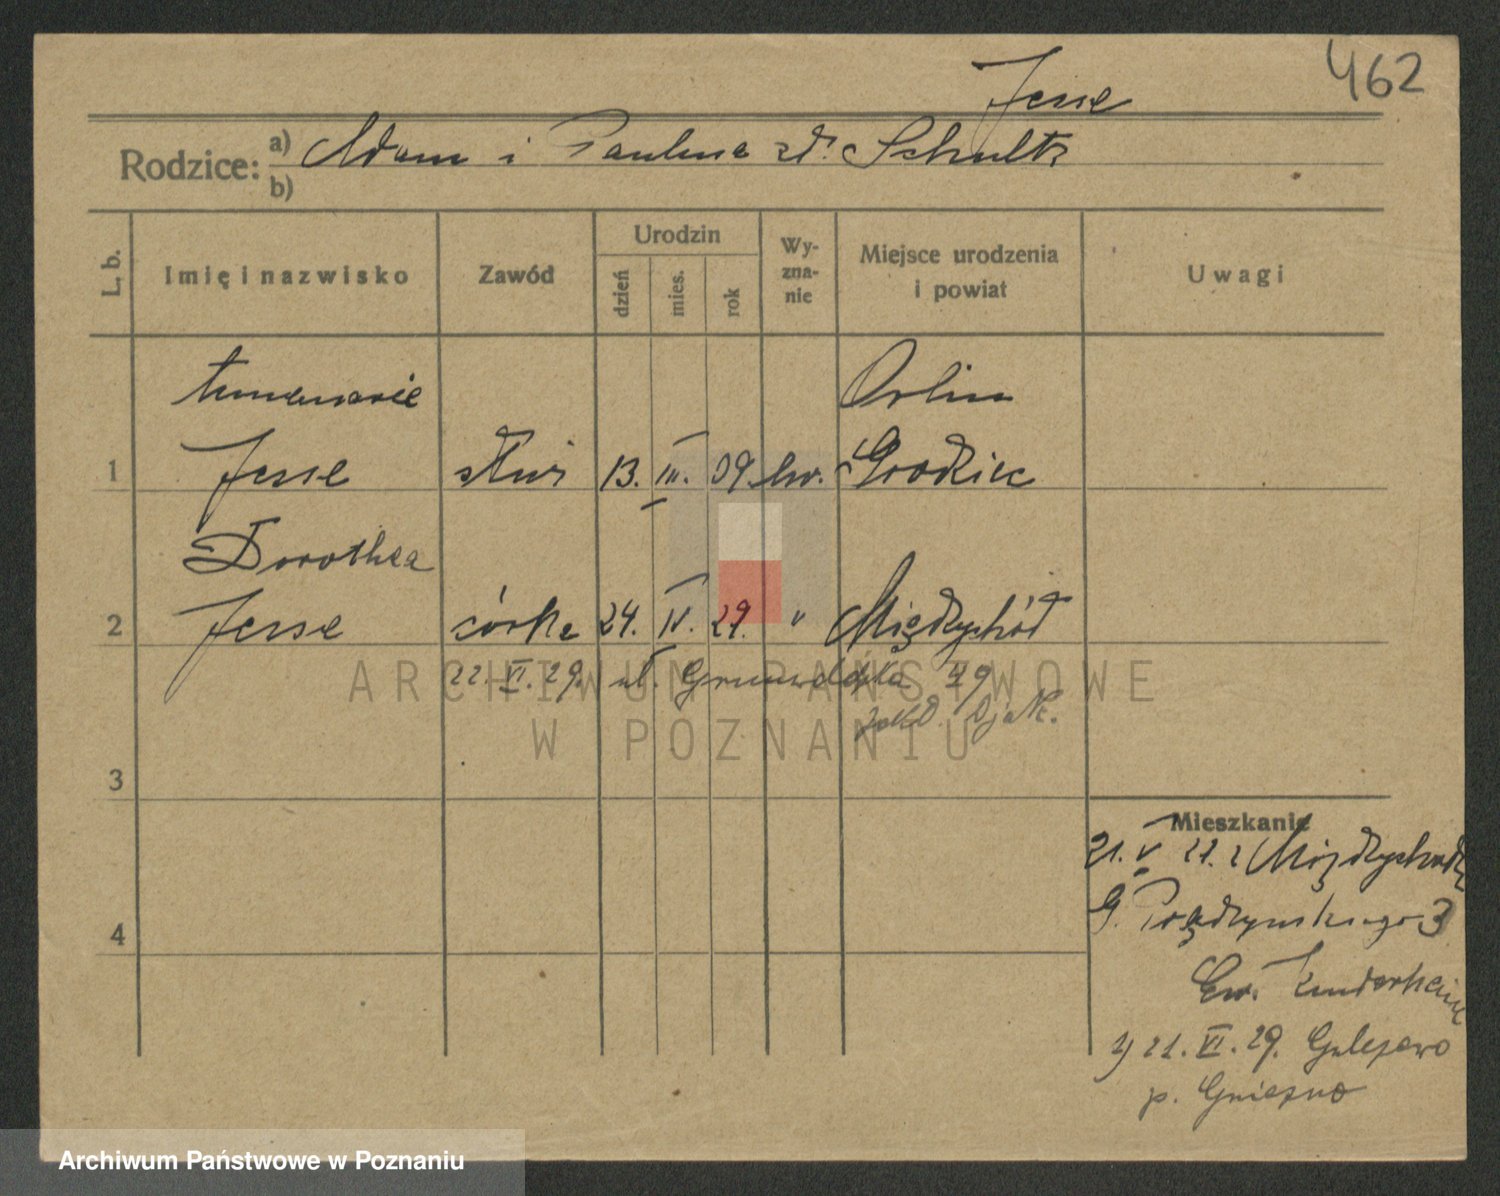 462
Jesse
Rodzice: a) Adam i Paulina zd. Schultz
b)
L. b. Imię i nazwisko Zawód Urodzin dzień mies. rok Wy-zna-nie Miejsce urodzenia i powiat Uwagi
Annemarie Orlin
1 Jesse służ 13. III. 09. Ew. Grodziec
Dorothea
2 Jesse córka 24. IV. 29. " Międzychód
22. VI. 29. ul. Grunwaldzka 49
zakł. Djak.
3
Mieszkanie
21. V 29. z Międzychodu
4
G. Prądzyńskiego 3
Ew. Kinderheim
1) 21. VI. 29. Gulczewo
p. Gniezno
ARCHIWUM PAŃSTWOWE
W POZNANIU
Archiwum Państwowe w Poznaniu